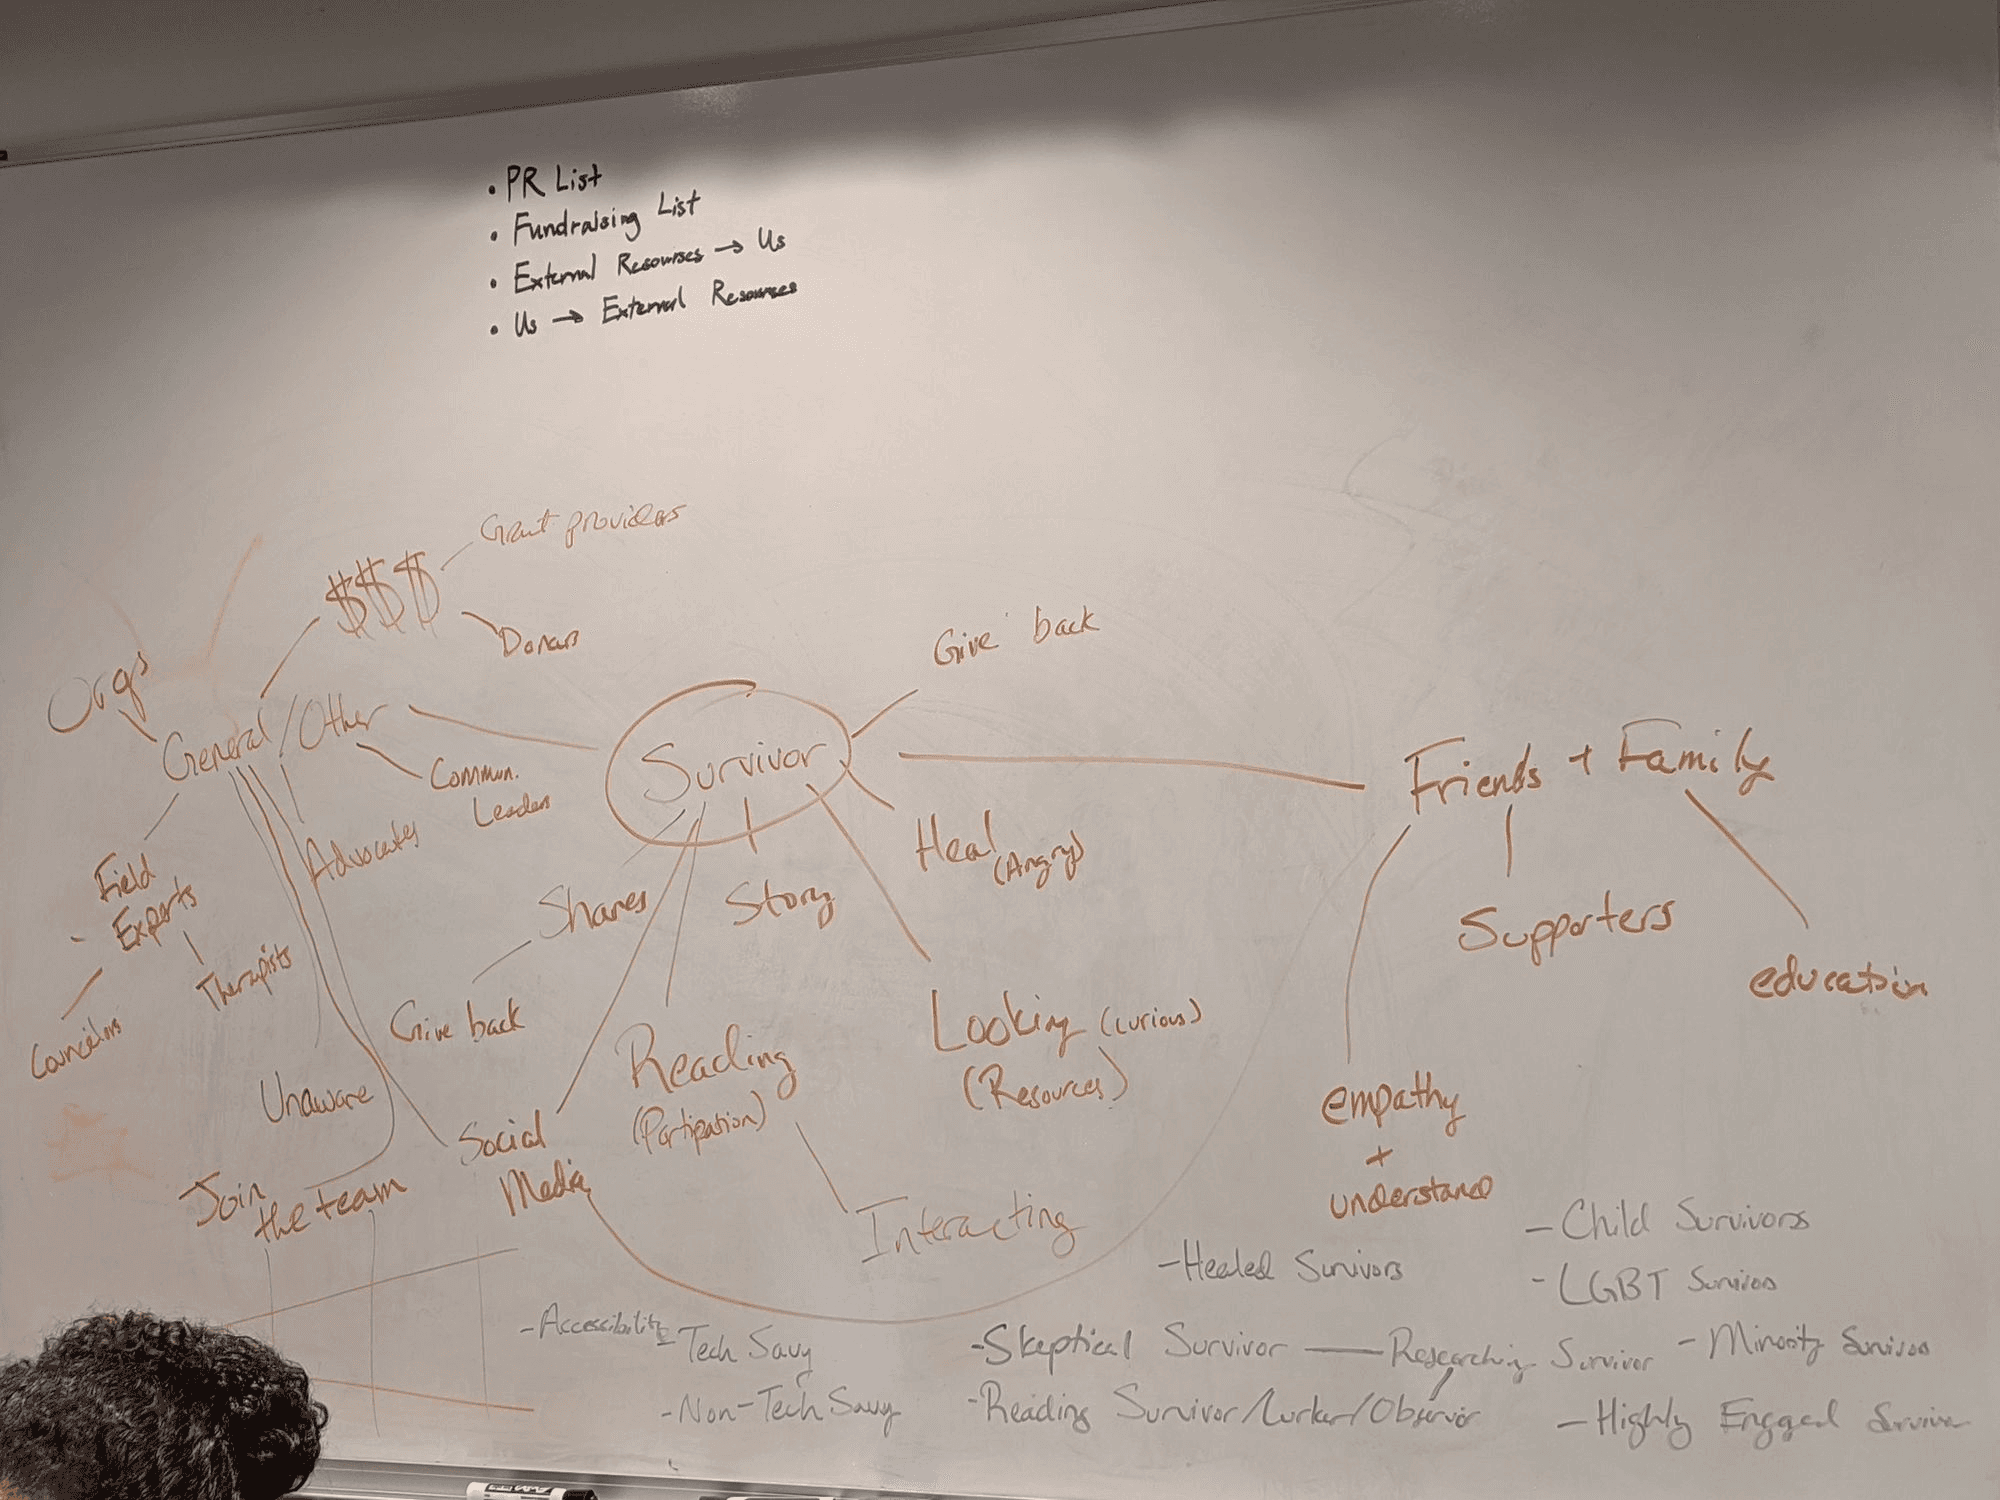 • PR List
• Fundraising List
• External Resourses → Us
• Us → External Resourses
Grant providers
$$$
Donars
Orgs
General/Other
Commun.
Leaders
Advocates
Field
Experts
Therapists
Councelors
Unaware
Join
the team
Social
Media
Survivor
Give back
Heal
(Angry)
Shares
Give back
Story
Reading
(Partipation)
Interacting
Looking (curious)
(Resources)
Friends + Family
Supporters
education
empathy
+
understand
- Accessibility
- Tech Savy
- Non-Tech Savy
- Healed Survivors
- Skeptical Survivor — Researching Survivor
- Reading Survivor/Lurker/Observor
- Child Survivors
- LGBT Survivors
- Minority Survivors
- Highly Engaged Survivor